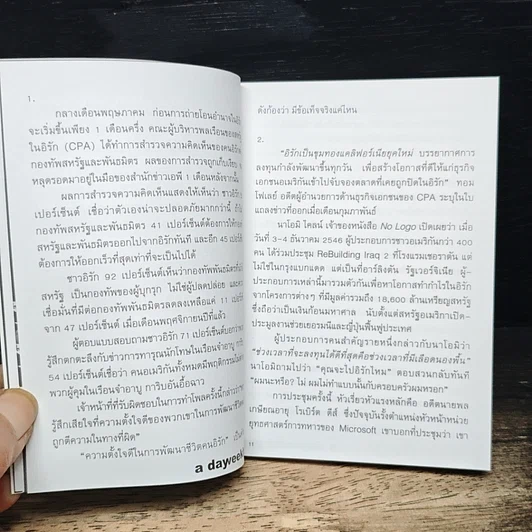 1.
กลางเดือนพฤษภาคม ก่อนการถ่ายโอนอำนาจในอิ
จะเริ่มขึ้นเพียง 1 เดือนครึ่ง คณะผู้บริหารพลเรือนของ
ในอิรัก (CPA) ได้ทำการสำรวจความคิดเห็นของคนอิรัก
กองทัพสหรัฐและพันธมิตร ผลของการสำรวจถูกเก็บเงียบ
หลุดรอดมาอยู่ในมือของสำนักข่าวเอพี 1 เดือนหลังจากนั้น
ผลการสำรวจความคิดเห็นแสดงให้เห็นว่า ชาวอิรัก
เปอร์เซ็นต์ เชื่อว่าตัวเองน่าจะปลอดภัยมากกว่านี้ ถ้า
สหรัฐและพันธมิตร 41 เปอร์เซ็นต์ต้องการให้กอง
สหรัฐและพันธมิตรออกไปจากอิรักทันที และอีก 45 เปอร์เซ็
ต้องการให้ออกเร็วที่สุดเท่าที่จะเป็นไปได้
ชาวอิรัก 92 เปอร์เซ็นต์เห็นว่ากองทัพพันธมิตร
สหรัฐ เป็นกองทัพของผู้บุกรุก ไม่ใช่ผู้ปลดปล่อย และค
เชื่อมั่นที่มีต่อกองทัพพันธมิตรลดลงเหลือแค่ 11 เปอร์เซ็
จาก 47 เปอร์เซ็นต์ เมื่อเดือนพฤศจิกายนปีที่แล้ว
ผู้ตอบแบบสอบถามชาวอิรัก 71 เปอร์เซ็นต์บอกว่า
รู้สึกตกตะลึงกับข่าวการทารุณนักโทษในเรือนจำอาบู
54 เปอร์เซ็นต์เชื่อว่า คนอเมริกันทั้งหมดมีพฤติกรรมไม่
พวกผู้คุมในเรือนจำอาบู การิบอันอื้อฉาว
เจ้าหน้าที่ที่รับผิดชอบในการทำโพลครั้งนี้กล่าวว่า
รู้สึกเสียใจที่ความตั้งใจดีของพวกเขาในการพัฒนาชีวิต
ถูกตีความในทางที่ผิด"
"ความตั้งใจดีในการพัฒนาชีวิตคนอิรัก" เป็น
a dayweek
ดังก้องว่า มีข้อเท็จจริงแค่ไหน
2.
"อิรักเป็นขุมทองแคลิฟอร์เนียยุคใหม่ บรรยากาศการ
ลงทุนกำลังพัฒนาขึ้นทุกวัน เพื่อสร้างโอกาสที่ดีให้แก่ธุรกิจ
เอกชนอเมริกันเข้าไปจับจองตลาดที่เคยถูกปิดในอิรัก" ทอม
โฟเลย์ อดีตผู้อำนวยการด้านธุรกิจเอกชนของ CPA ระบุในใบ
แถลงข่าวที่ออกเมื่อเดือนกุมภาพันธ์
นาโอมิ ไคลน์ เจ้าของหนังสือ No Logo เปิดเผยว่า เมื่อ
วันที่ 3-4 ธันวาคม 2546 ผู้ประกอบการชาวอเมริกันกว่า 400
คน ได้ร่วมประชุม ReBuilding Iraq 2 ที่โรงแรมเชอราตัน แต่
ไม่ใช่ในกรุงแบกแดด แต่เป็นที่อาร์ลิงตัน รัฐเวอร์จิเนีย ผู้-
ประกอบการเหล่านี้มารวมตัวกันเพื่อหาโอกาสทำกำไรในอิรัก
จากโครงการต่างๆ ที่มีมูลค่ารวมถึง 18,600 ล้านเหรียญสหรัฐ
ซึ่งถือว่าเป็นเงินก้อนมหาศาล นับตั้งแต่สหรัฐอเมริกาเปิด-
ประมูลงานช่วยเยอรมนีและญี่ปุ่นฟื้นฟูประเทศ
ผู้ประกอบการคนสำคัญรายหนึ่งกล่าวกับนาโอมิว่า
"ช่วงเวลาที่จะลงทุนได้ดีที่สุดคือช่วงเวลาที่มีเลือดนองพื้น"
นาโอมิถามไปว่า "คุณจะไปอิรักไหม" ตอบสวนกลับทันที
"ผมนะหรือ? ไม่ ผมไม่ทำแบบนั้นกับครอบครัวผมหรอก"
การประชุมครั้งนี้ หัวเรี่ยวหัวแรงหลักคือ อดีตนายพล
เกษียณอายุ โรเบิร์ต ดีส์ ซึ่งปัจจุบันรั้งตำแหน่งหัวหน้าหน่วย
ยุทธศาสตร์การทหารของ Microsoft เขาบอกที่ประชุมว่า เขา
11